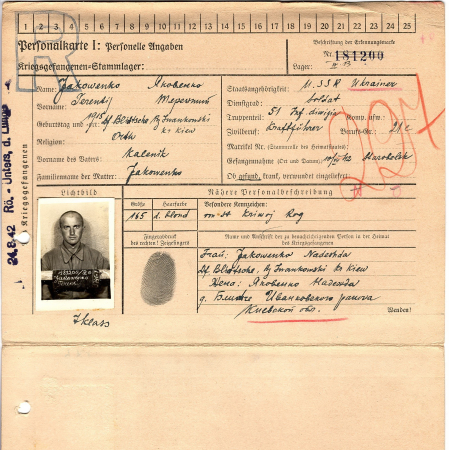 1 2 3 4 5 6 7 8 9 10 11 12 13 14 15 16 17 18 19 20 21 22 23 24 25
Personalkarte I: Personelle Angaben
Kriegsgefangenen-Stammlager:
Beschriftung der Erkennungsmarke
Nr. 181200
Lager:
R
297
24.8.42 Rö.-Unters. d. Lunge
d. Kriegsgefangenen
Name: Jakowenko Яковенко
Vorname: Terentij Терентий
Geburtstag und -ort
Kr Iwankowski
kr Kiew
Religion: Orth
Vorname des Vaters: Kalenik
Familienname der Mutter: Jakowenko
Staatsangehörigkeit: U.SSR Ukrainer
Dienstgrad: Soldat
Truppenteil: 51 Inf. Komp. usw.
Zivilberuf: Kraftführer Berufs-Gr.: 21c
Matrikel Nr. (Stammrolle des Heimatstaates)
Gefangennahme (Ort und Datum)
Ob gefund, krank, verwundet eingeliefert:
Lichtbild
Nähere Personalbeschreibung
Größe Haarfarbe Besondere Kennzeichen:
165 d. blond Kriwoj Rog
Fingerabdruck des rechten! Zeigefingers
Name und Anschrift der zu benachrichtigenden Person in der Heimat des Kriegsgefangenen
Frau: Jakowenko Nadeshda
Iwankowski kr Kiew
Жена: Яковенко Надежда
Иванковского района
Киевской обл.
Wenden!